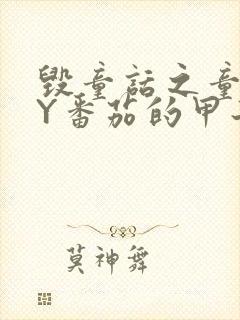 毁童话之童
Y番茄的甲
莫神舞